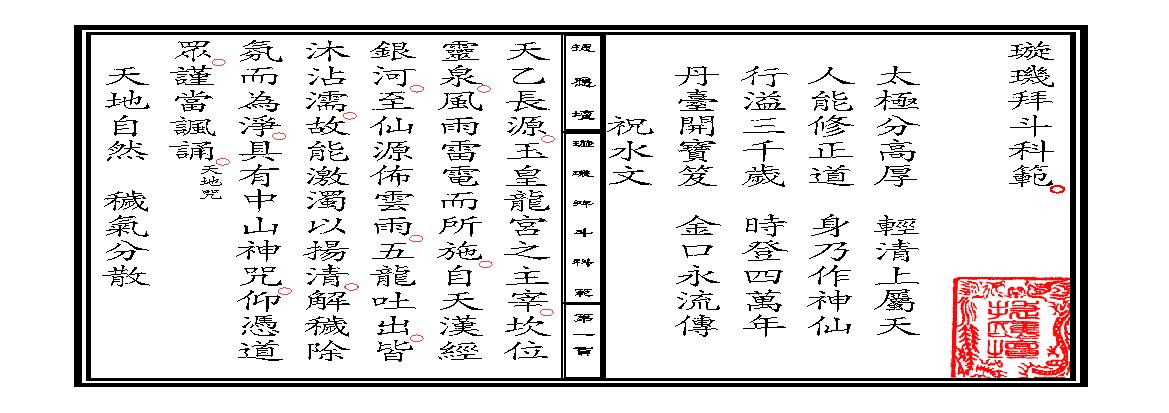 璇璣拜斗科範
太極分高厚　輕清上屬天
人能修正道　身乃作神仙
行溢三千歲　時登四萬年
丹臺開寶笈　金口永流傳
祝水文
璇璣拜斗科範
第一頁
天乙長源玉皇龍宮之主宰坎位
靈泉風雨雷電而所施自天漢經
銀河至仙源佈雲雨五龍吐出皆
沐沾濡故能激濁以揚清解穢除
氛而為淨具有中山神咒仰憑道
眾謹當諷誦天地咒
天地自然　穢氣分散